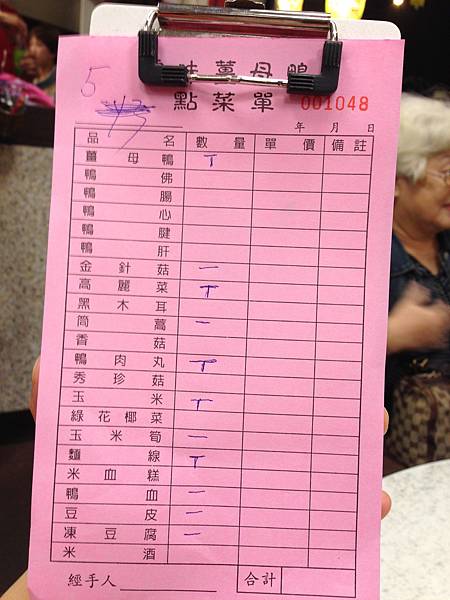 味薑母鴨
5
點菜單 001048
年 月 日
品名 數量 單價 備註
薑母鴨 T
鴨佛
鴨腸
鴨心
鴨腱
鴨肝
金針菇 一
高麗菜 T
黑木耳
筒蒿 一
香菇
鴨肉丸 T
秀珍菇
玉米 T
綠花椰菜
玉米筍 一
麵線 T
米血糕
鴨血 一
豆皮 一
凍豆腐 一
米酒
經手人 合計